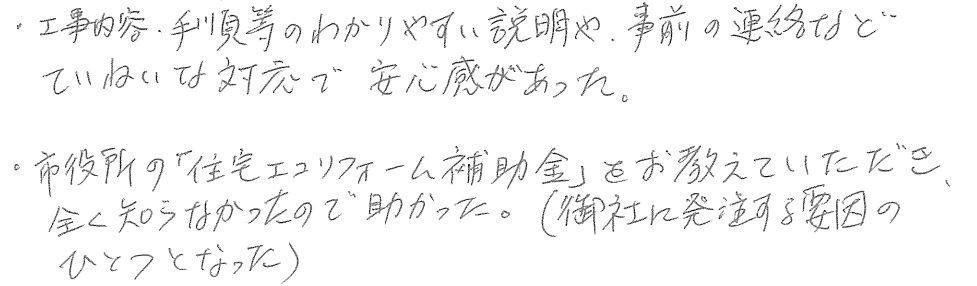 ・工事内容・手順等のわかりやすい説明や、事前の連絡など
ていねいな対応で安心感があった。
・市役所の「住宅エコリフォーム補助金」をお教えていただき、
全く知らなかったので助かった。(御社に発注する要因の
ひとつとなった)